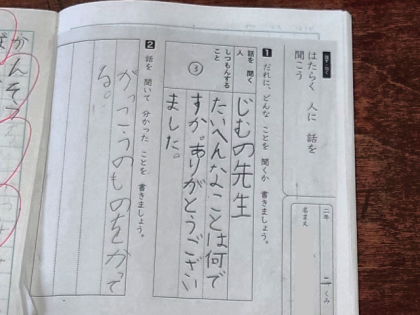 はたらく 人に 話を
聞こう
二年
二くみ
名まえ
1 だれに、どんな ことを 聞くか 書きましょう。
話を 聞く
人
じむの先生
しつもんする
こと
③
たいへんなことは何で
すか。ありがとうござい
ました。
2 話を 聞いて 分かった ことを 書きましょう。
がっこうのものをかって
る。
かんそ